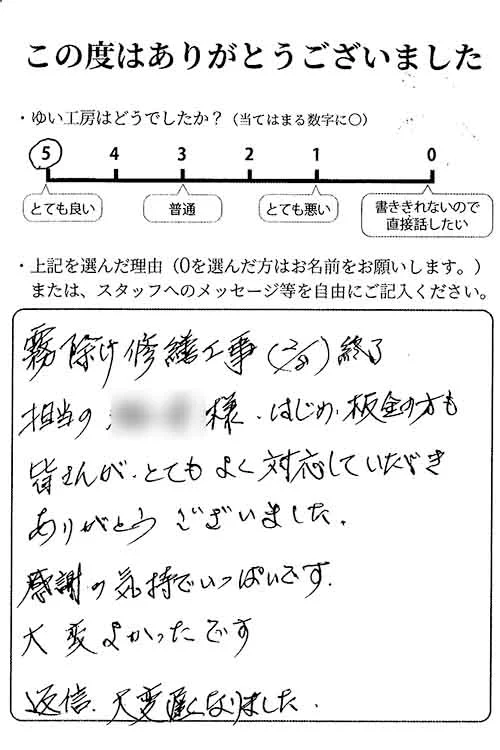 この度はありがとうございました
・ゆい工房はどうでしたか？（当てはまる数字に〇）
5 4 3 2 1 0
とても良い 普通 とても悪い 書ききれないので
直接話したい
・上記を選んだ理由（0を選んだ方はお名前をお願いします。）
または、スタッフへのメッセージ等を自由にご記入ください。
霧除け修繕工事（2/8）終了
担当の 様.はじめ.板金の方も
皆さんが.とてもよく対応していただき
ありがとうございました.
感謝の気持でいっぱいです.
大変よかったです
返信.大変遅くなりました.